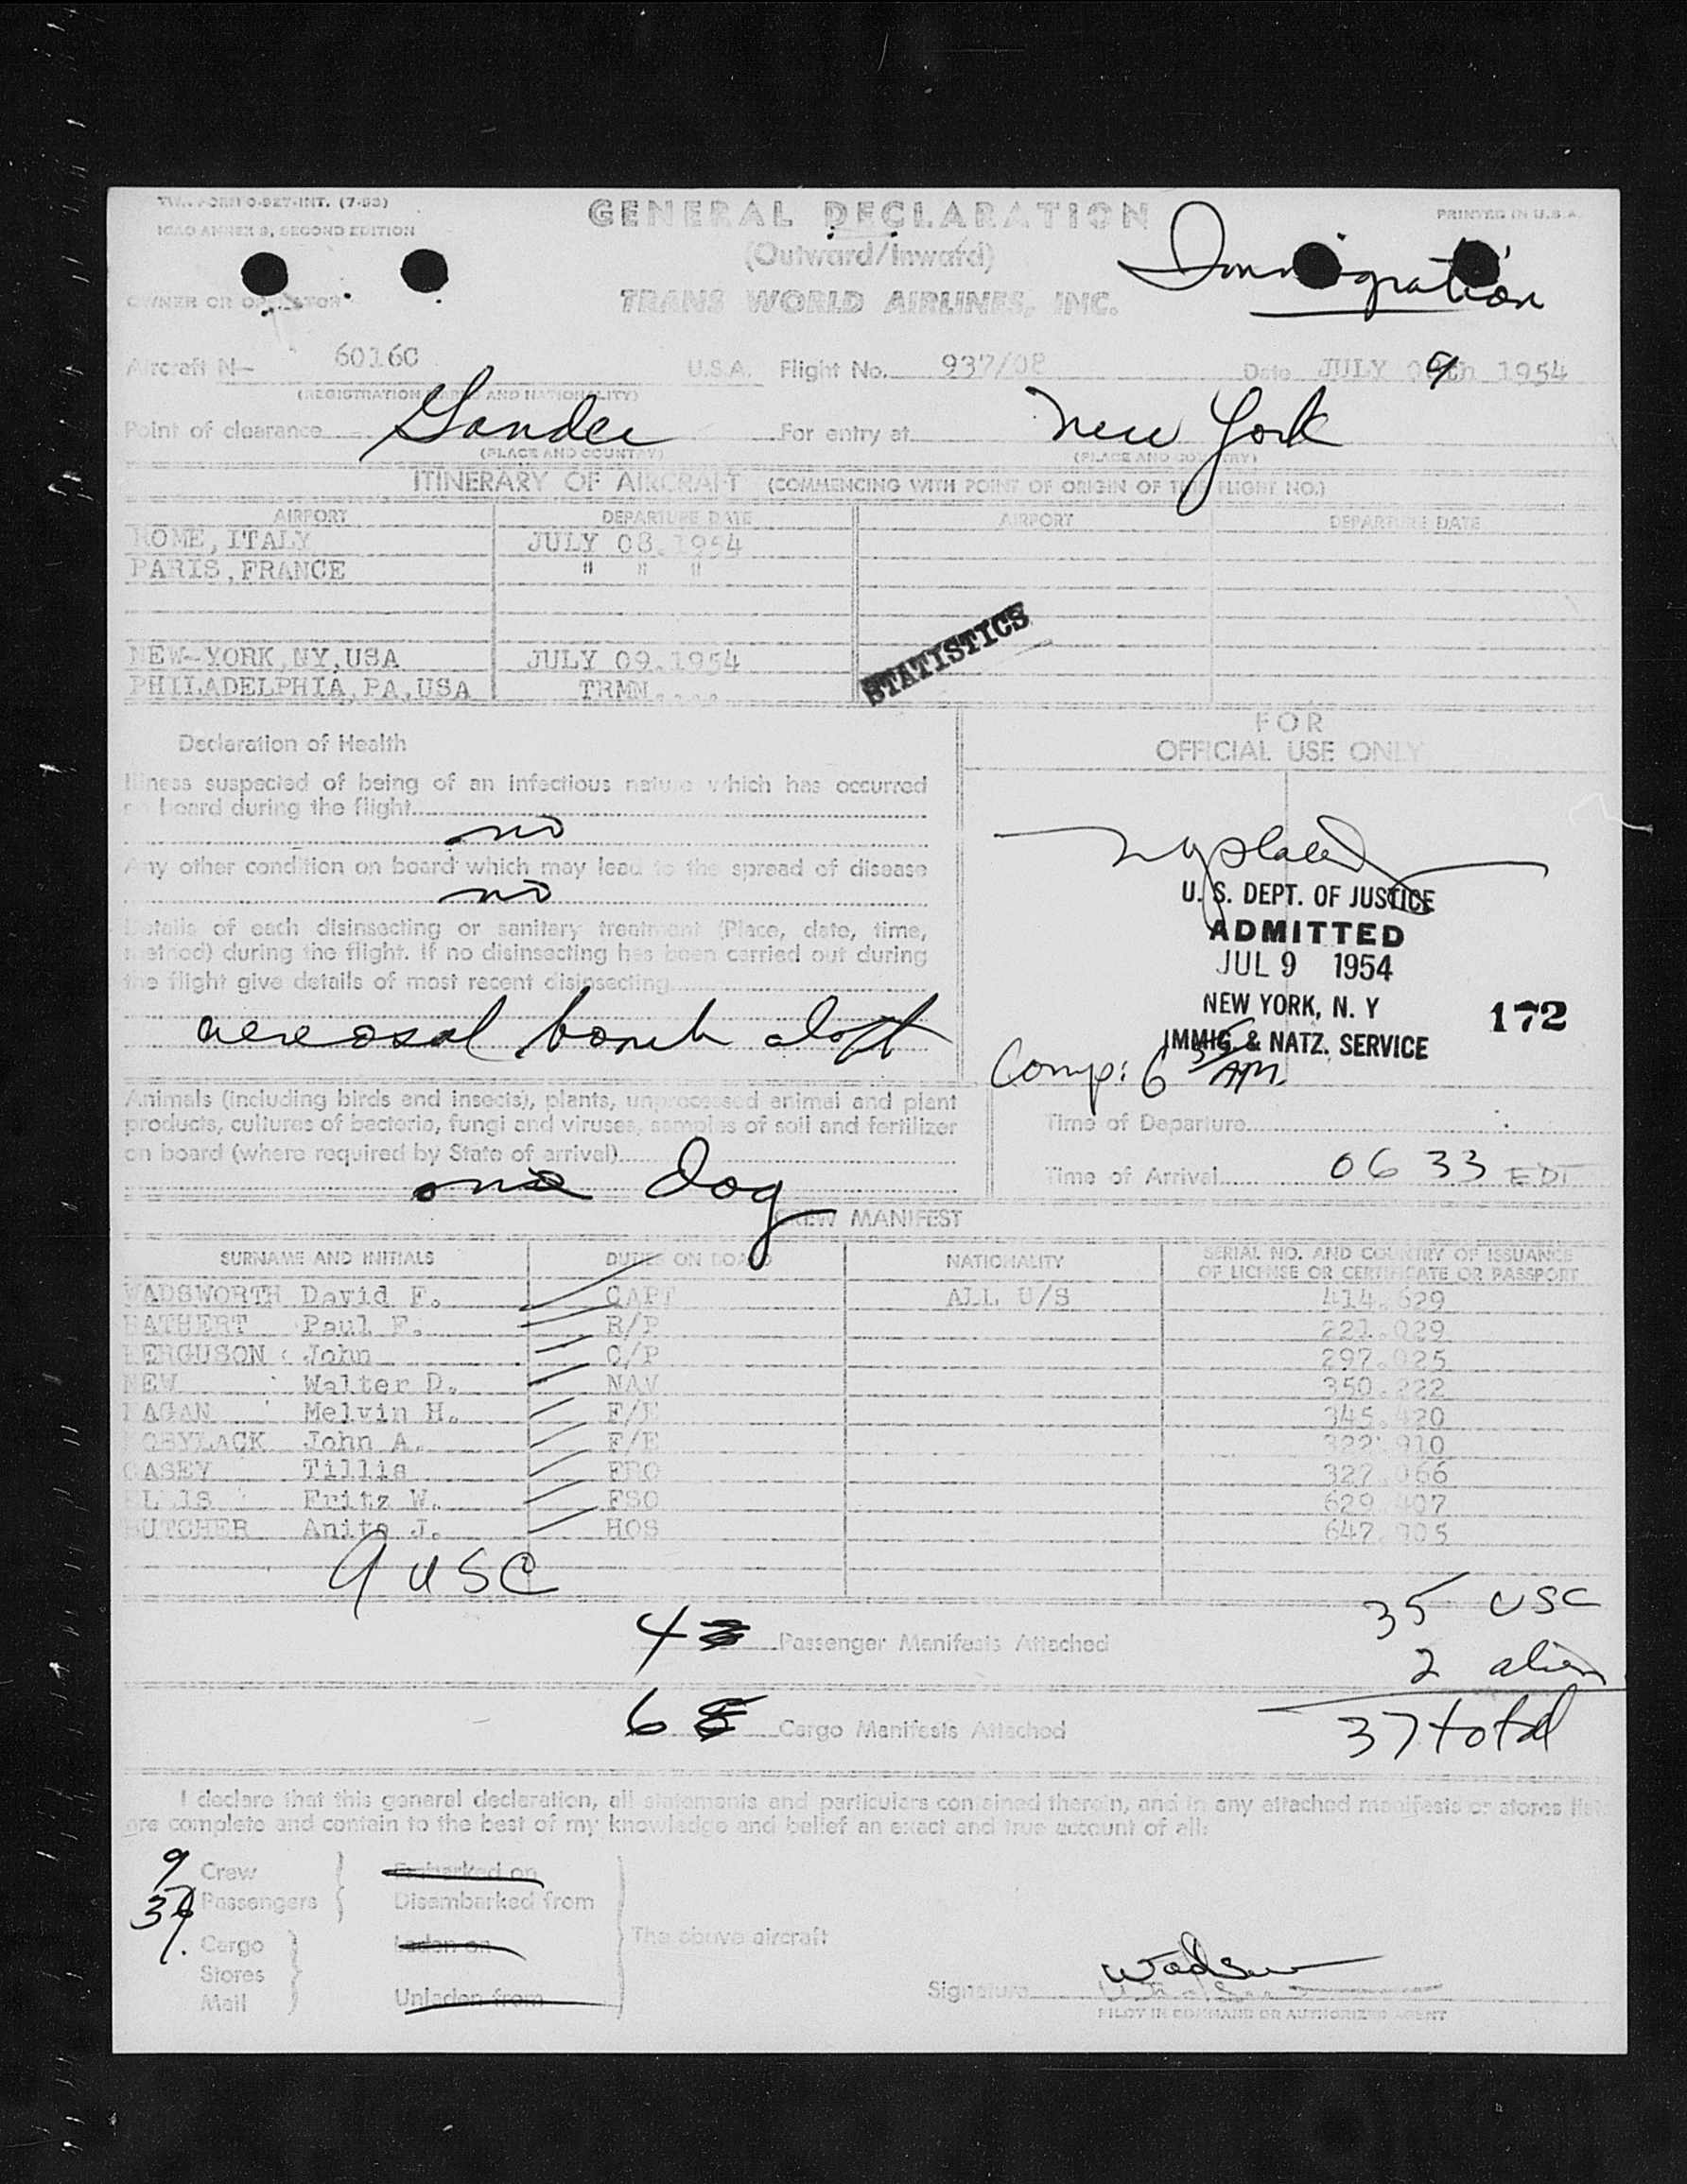 ICAO ANNEX 9, SECOND EDITION
GENERAL DECLARATION
(Outward/Inward)
TRANS WORLD AIRLINES, INC.
PRINTED IN U.S.A.
Immigration
OWNER OR OPERATOR
Aircraft N— 6016C U.S.A. Flight No. 937/08 Date JULY 09th 1954
(REGISTRATION MARKS AND NATIONALITY)
Point of clearance Gander For entry at New York
(PLACE AND COUNTRY) (PLACE AND COUNTRY)
ITINERARY OF AIRCRAFT (COMMENCING WITH POINT OF ORIGIN OF THIS FLIGHT NO.)
AIRPORT DEPARTURE DATE AIRPORT DEPARTURE DATE
ROME, ITALY JULY 08.1954
PARIS, FRANCE " " "
NEW-YORK, NY, USA JULY 09.1954
PHILADELPHIA, PA, USA TRMN....
STATISTICS
Declaration of Health
Illness suspected of being of an infectious nature which has occurred
on board during the flight
no
Any other condition on board which may lead to the spread of disease
no
Details of each disinsecting or sanitary treatment (Place, date, time,
method) during the flight. If no disinsecting has been carried out during
the flight give details of most recent disinsecting
aereosal bomb aloft
FOR
OFFICIAL USE ONLY
U. S. DEPT. OF JUSTICE
ADMITTED
JUL 9 1954
NEW YORK, N. Y
172
IMMIG & NATZ. SERVICE
Comp: 6 AM
Animals (including birds and insects), plants, unprocessed animal and plant
products, cultures of bacteria, fungi and viruses, samples of soil and fertilizer
on board (where required by State of arrival)
one dog
Time of Departure
Time of Arrival 06 33 EDT
CREW MANIFEST
SURNAME AND INITIALS DUTIES ON BOARD NATIONALITY SERIAL NO. AND COUNTRY OF ISSUANCE
OF LICENSE OR CERTIFICATE OR PASSPORT
WADSWORTH David F. CAPT ALL U/S 414.629
Paul F. R/P 221.029
FERGUSON John C/P 297.025
NEW Walter D. NAV 350.222
Melvin H. F/E 345.420
John A. F/E 322.910
CASEY Tillis FRO 327.066
Fritz W. FSO 629.407
BUTCHER Anita J. HOS 647.905
9 USC
35 USC
4 Passenger Manifests Attached
2 alien
6 Cargo Manifests Attached
37 total
I declare that this general declaration, all statements and particulars contained therein, and in any attached manifests or stores list
are complete and contain to the best of my knowledge and belief an exact and true account of all:
9 Crew Embarked on
37 Passengers Disembarked from
The above aircraft
Cargo Laden on
Stores
Mail Unladen from
Signature
PILOT IN COMMAND OR AUTHORIZED AGENT